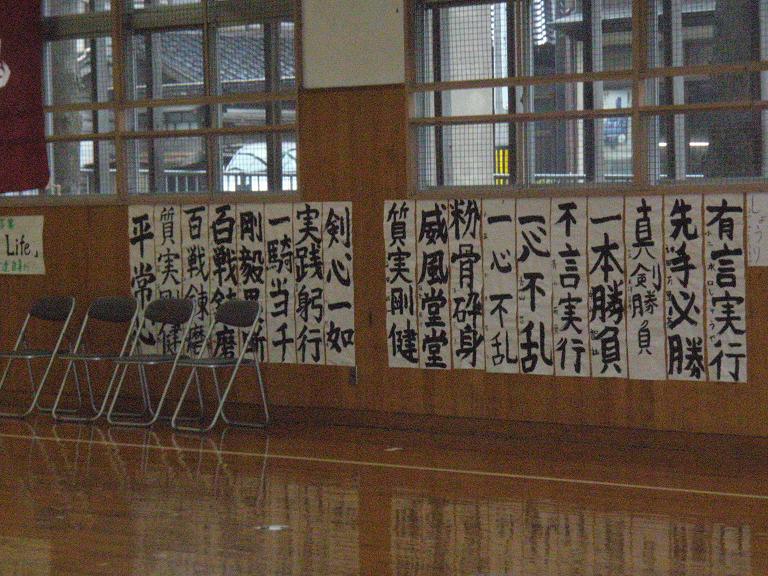 しょうり
有言実行
先手必勝
真剣勝負
一本勝負
不言実行
一心不乱
一心不乱
粉骨砕身
威風堂堂
質実剛健
剣心一如
実践躬行
一騎当千
剛毅
百戦錬磨
百戦錬磨
質実剛健
平常心
Life.